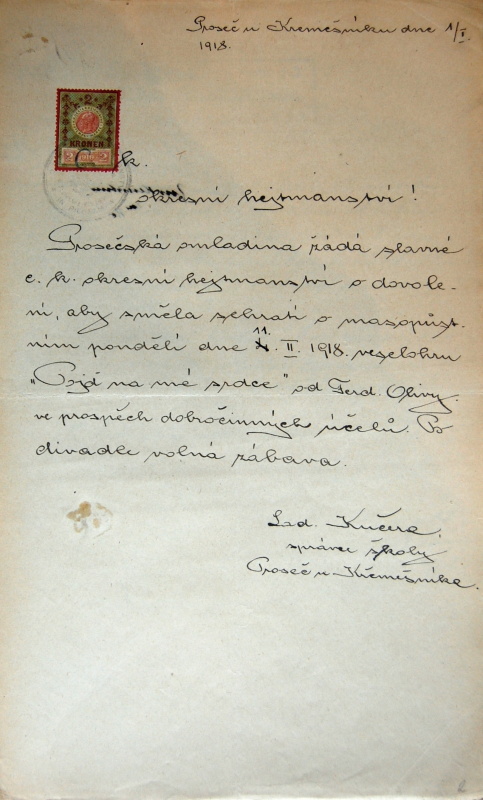 Proseč u Kremešníku dne 1/I.
1918.
2
KRONEN
2 2
C. k.
okresní hejtmanství!
Prosečská omladina žádá slavné
c. k. okresní hejtmanství o dovole-
ní, aby směla sehrati o masopust-
ním pondělí dne 11. II. 1918. veselohru
„Pojď na mé srdce" od Ferd. Olivy.
ve prospěch dobročinných účelů. Po
divadle volná zábava.
Lad. Kučera,
správce školy
Proseč u Křemešníka.